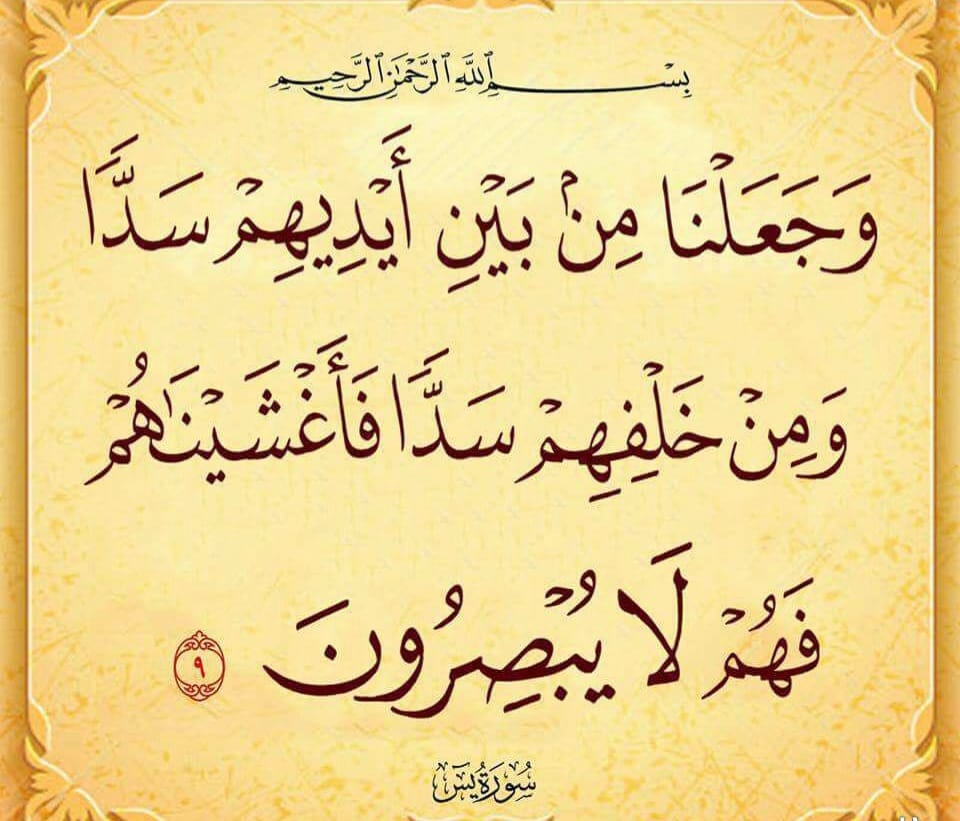 بِسْمِ ٱللَّهِ ٱلرَّحْمَٰنِ ٱلرَّحِيمِ
وَجَعَلْنَا مِنۢ بَيْنِ أَيْدِيهِمْ سَدًّا
وَمِنْ خَلْفِهِمْ سَدًّا فَأَغْشَيْنَٰهُمْ
فَهُمْ لَا يُبْصِرُونَ ٩
سُورَةُ يسٓ